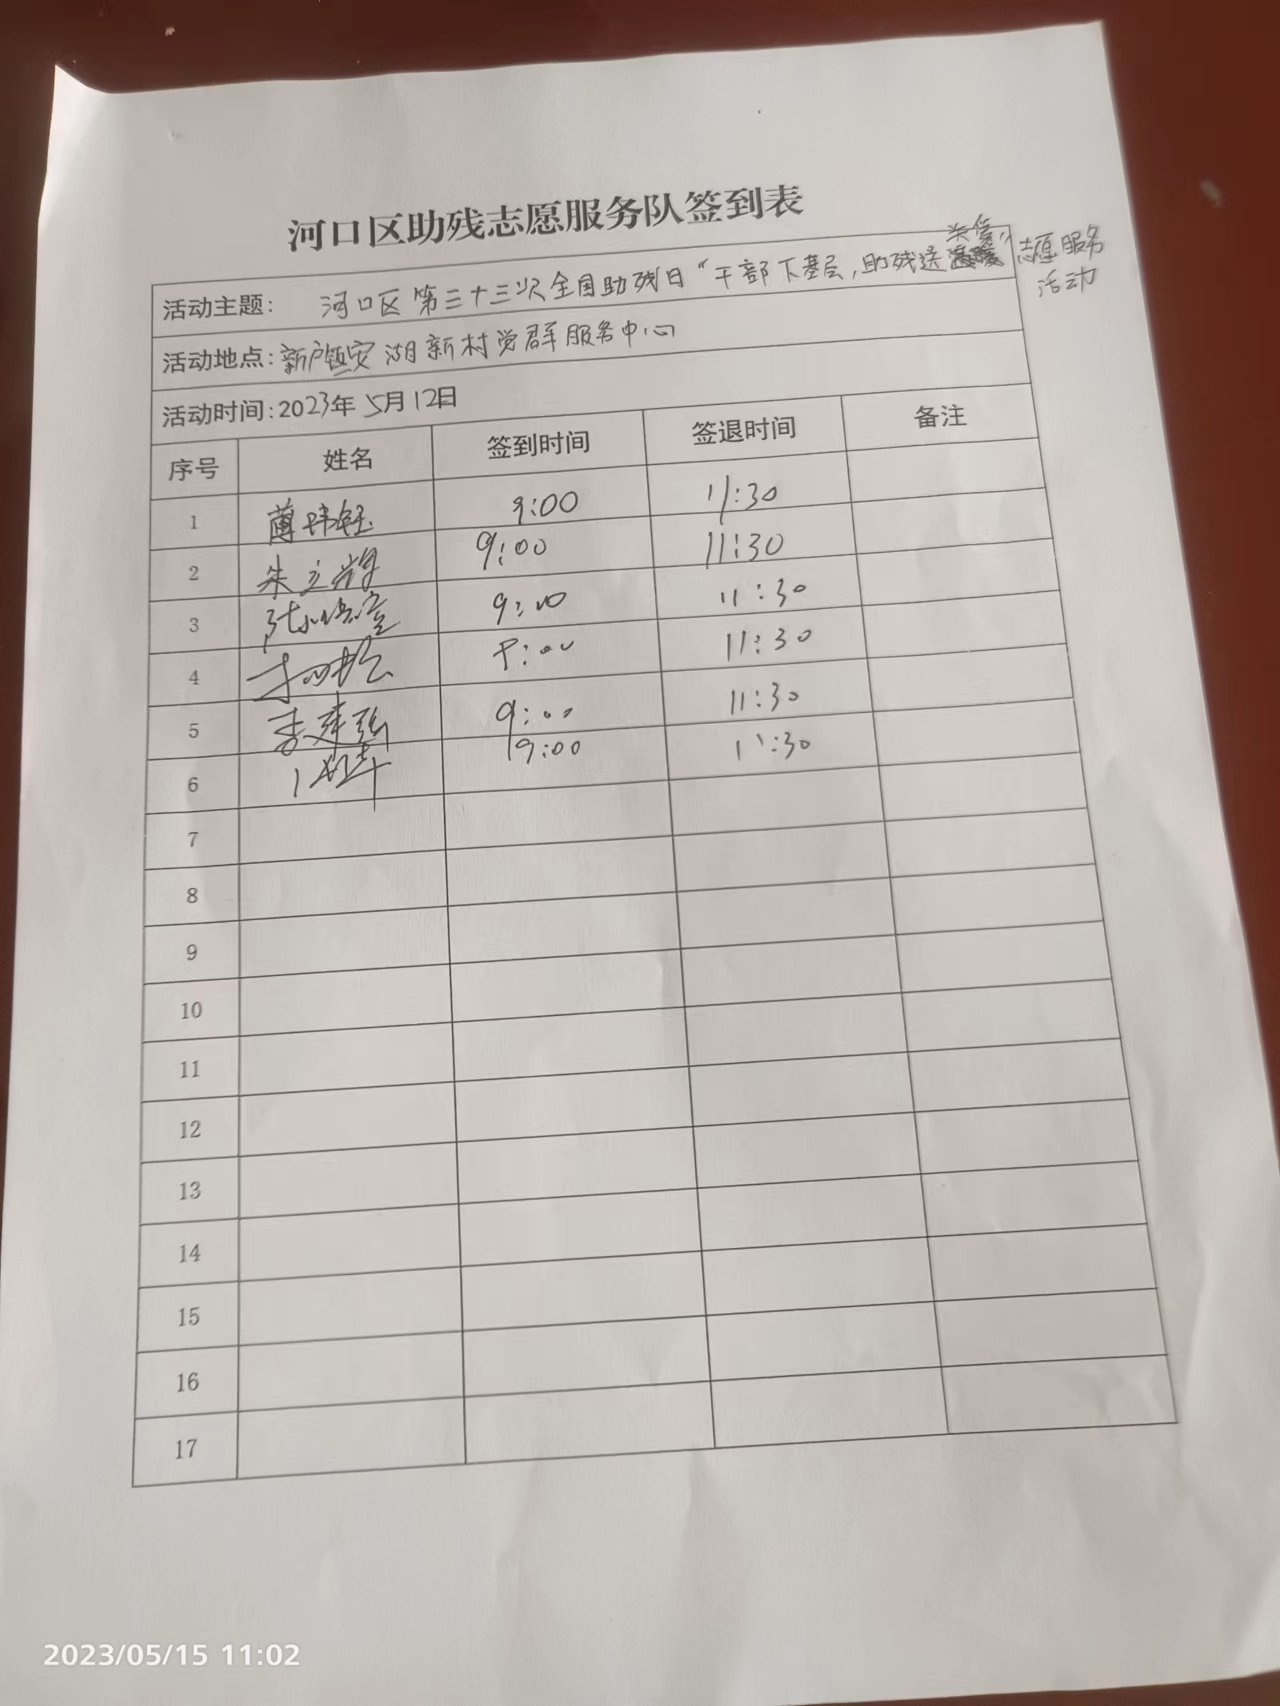 河口区助残志愿服务队签到表
活动主题: 河口区第三十三次全国助残日“干部下基层,助残送关爱”志愿服务
活动
活动地点:新户镇安湖新村党群服务中心
活动时间:2023年5月12日
序号 姓名 签到时间 签退时间 备注
1 9:00 11:30
2 朱立辉 9:00 11:30
3 9:00 11:30
4 9:00 11:30
5 李建强 9:00 11:30
6 9:00 11:30
7
8
9
10
11
12
13
14
15
16
17
2023/05/15 11:02